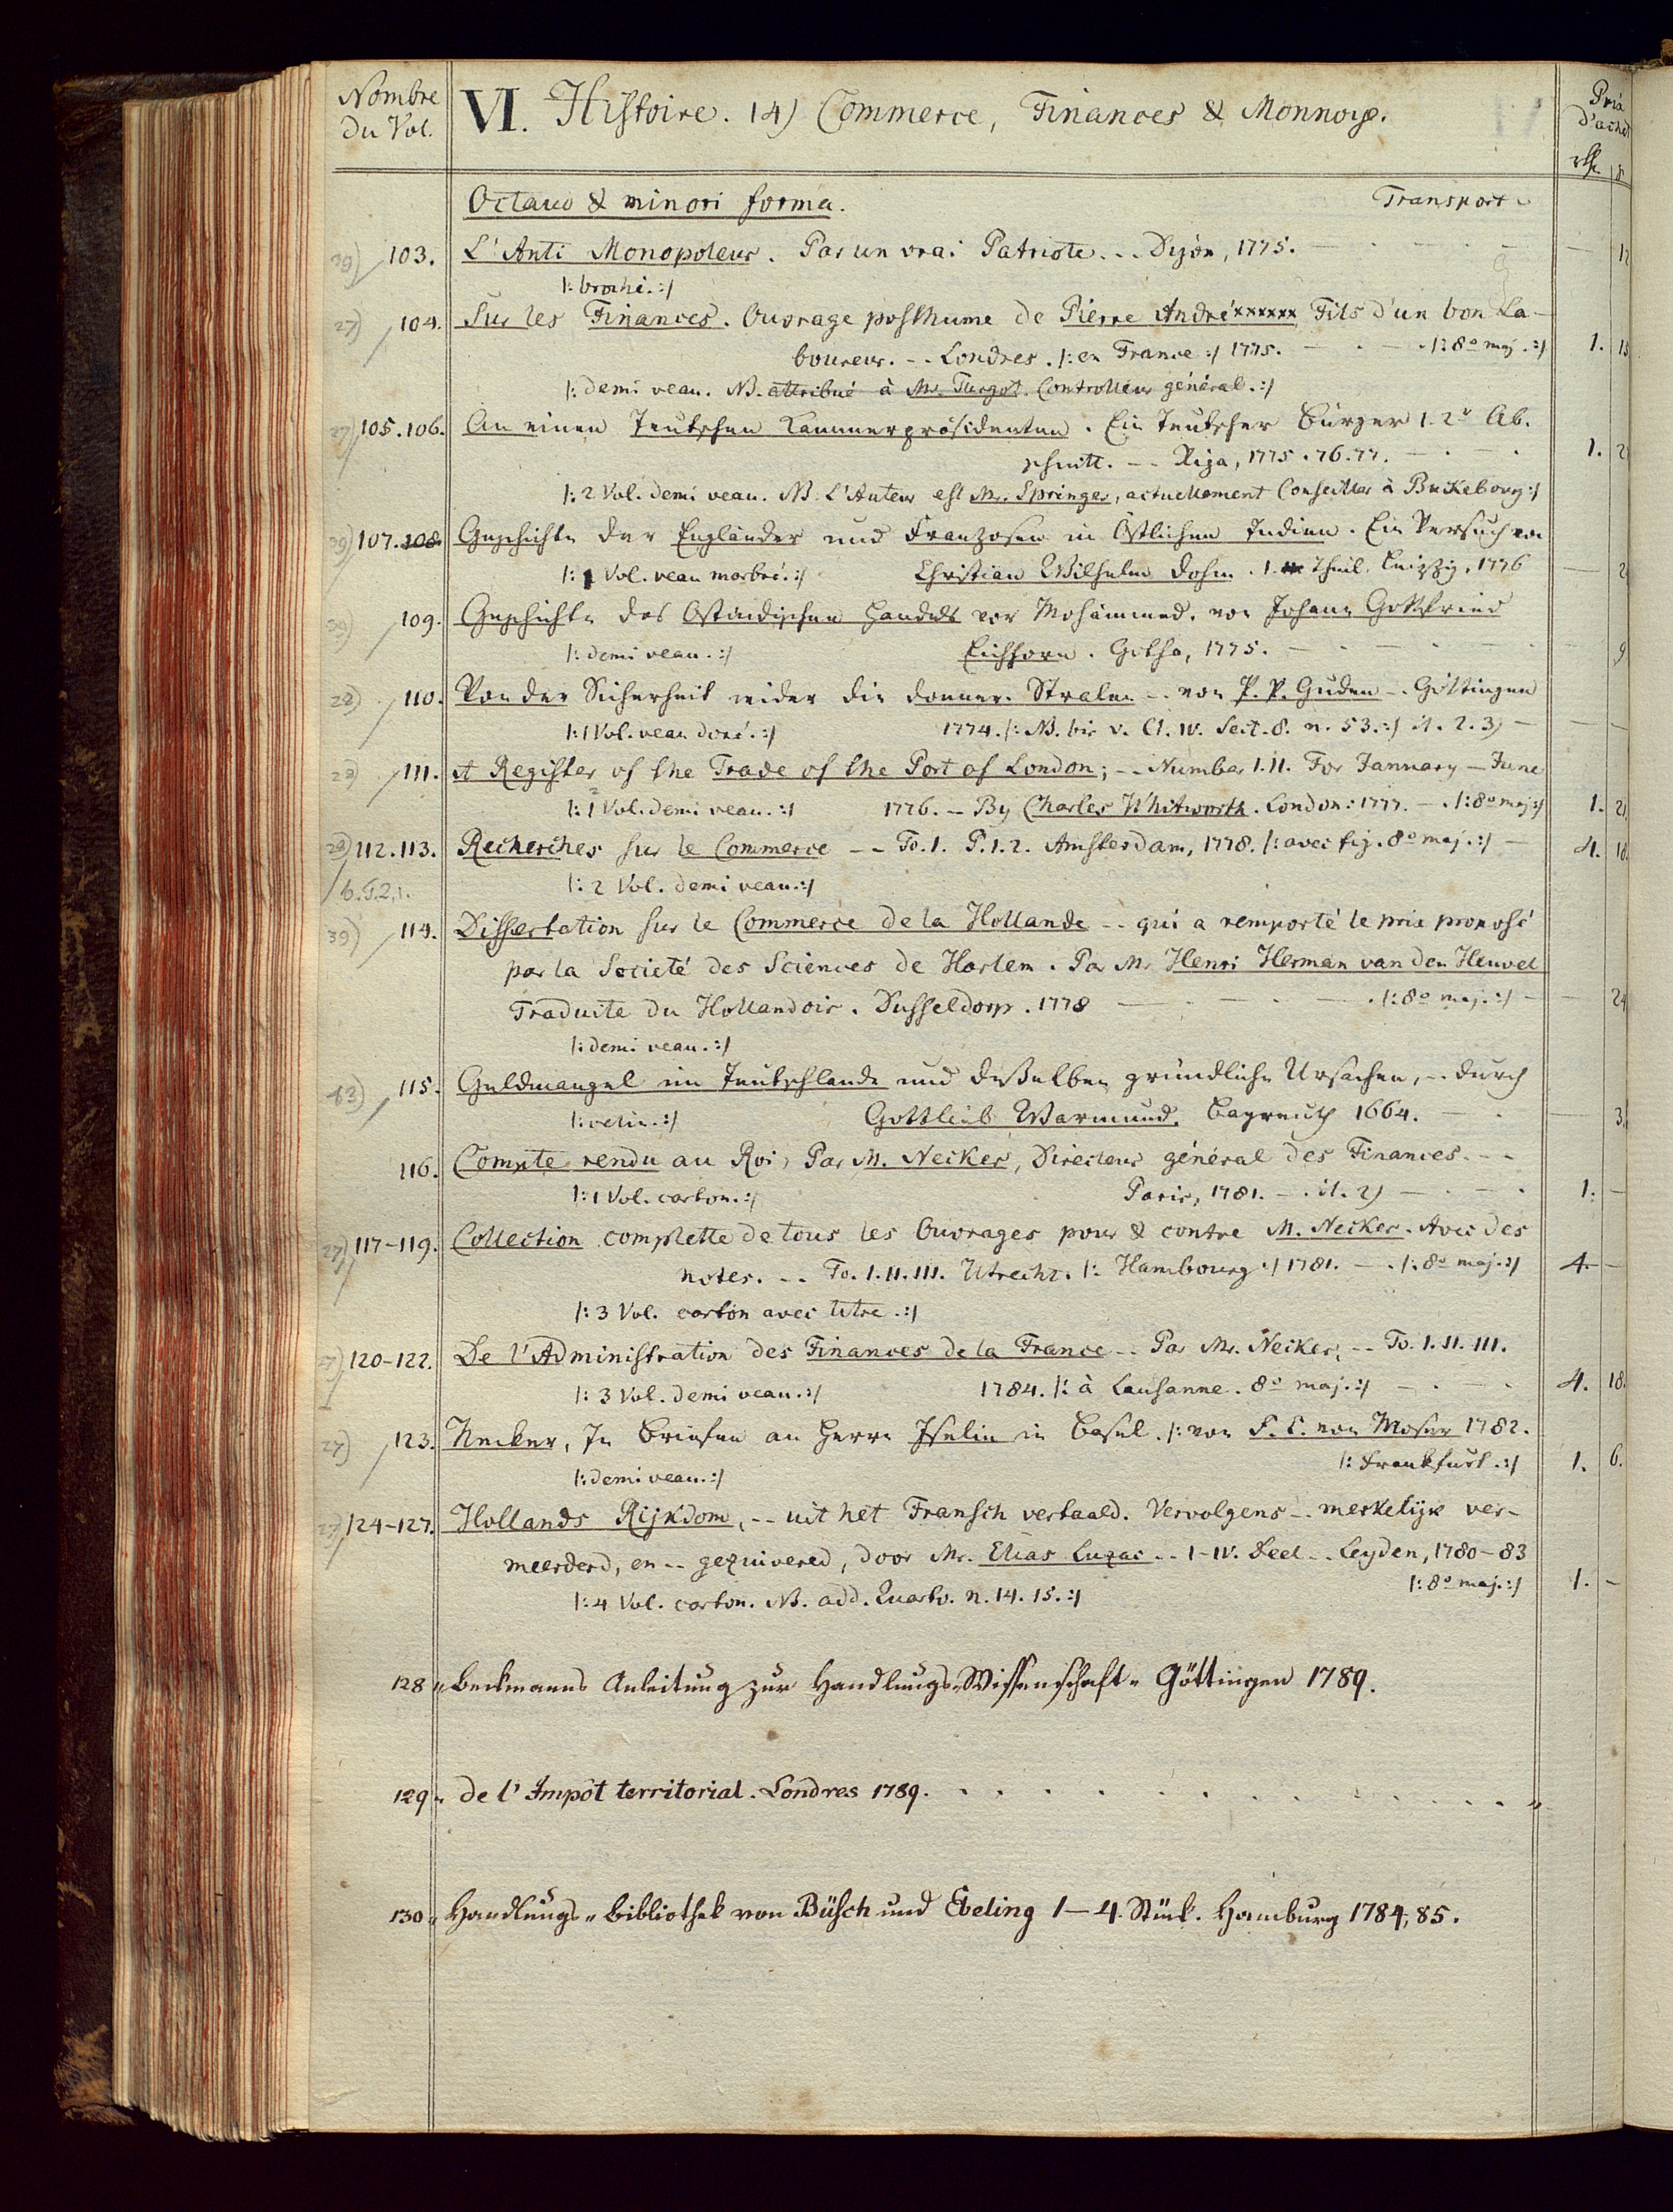 Nombre
du Vol.
VI. Histoire. 14) Commerce, Finances & Monnoye.
Prix
d'achat
Octavo & minori forma. Transport
39) 103. L'Anti Monopoleur. Par un vrai Patriote... Dijon, 1775.
/: broché. :/
27) 104. Sur les Finances. Ouvrage posthume de Pierre André xxxxxx Fils d'un bon La-
boureur. -- Londres. /: en France :/ 1775. /: 8º maj. :/ 1.
/: demi veau. NB. attribué à Mr. Turgot. Controlleur général. :/
27) 105. 106. An einen Teutschen Kammerpräsidenten. Ein Teutscher Bürger 1. 2r Ab.
schnitt. -- Riga, 1775. 76. 77. 1.
/: 2 Vol. demi veau. NB. L'Auteur est Mr. Springer, actuellement Conseiller à Buckebourg :/
39) 107. 108. Geschichte der Engländer und Franzosen in Östlichen Indien. Ein Versuch von
/: 1 Vol. veau marbré. :/ Christian Wilhelm Dohm. 1. Theil. Leipzig, 1776
39) 109. Geschichte des Ostindischen Handels vor Mohämmed. von Johann Gottfried
/: demi veau. :/ Eichhorn. Gotha, 1775. 9
28) 110. Von der Sicherheit wider die Donner-Stralen -- von P. P. Guden -- Göttingen
/: 1 Vol. veau doré. :/ 1774. /: NB. bis v. Cl. IV. Sect. 8. n. 53. :/ it. 2. 3)
28) 111. A Register of the Trade of the Port of London; -- Number I. II. For January — June
/: 1 Vol. demi veau. :/ 1776. -- By Charles Whitworth. London: 1777. /: 8º maj :/ 1.
28) 112. 113. Recherches sur le Commerce -- To. 1. P. 1. 2. Amsterdam, 1778. /: avec fig. 8º maj. :/ 4.
6. T. 2, 1. /: 2 Vol. demi veau. :/
39) 114. Dissertation sur le Commerce de la Hollande -- qui a remporté le prix proposé
par la Societé des Sciences de Harlem. Par Mr. Henri Herman van den Heuvel
Traduite du Hollandois. Dusseldorp. 1778 /: 8º maj. :/ 24
/: demi veau. :/
43) 115. Geldmangel im Teutschlande und deßelben gründliche Ursachen, -- durch
/: velin. :/ Gottlieb Warmund. Bayreuth 1664. 3
116. Compte rendu au Roi, Par M. Necker, Directeur général des Finances. --
/: 1 Vol. carton. :/ Paris, 1781. -. it. 2) 1. —
27) 117-119. Collection complette de tous les Ouvrages pour & contre M. Necker. Avec des
notes. -- To. I. II. III. Utrecht. /: Hambourg :/ 1781. /: 8º maj. :/ 4. —
/: 3 Vol. carton avec titre. :/
27) 120-122. De l'Administration des Finances de la France -- Par Mr. Necker, -- To. I. II. III.
/: 3 Vol. demi veau. :/ 1784. /: à Lausanne. 8º maj. :/ 4. 18.
27) 123. Necker, In Briefen an Herrn Iselin in Basel. /: von F. C. von Moser 1782.
/: demi veau. :/ /: Frankfurt. :/ 1. 6.
27) 124-127. Hollands Rijkdom, -- uit het Fransch vertaald. Vervolgens -- merkelijk ver-
meerderd, en -- gezuivered, door Mr. Elias Luzac -- I-IV. Deel -- Leyden, 1780-83
/: 4 Vol. carton. NB. add. Quarto. n. 14. 15. :/ /: 8º maj. :/ 1. —
128 „ Beckmanns Anleitung zur Handlungs-Wissenschaft „ Göttingen 1789.
129 „ de l'Impôt territorial. Londres 1789.
130 „ Handlungs „ bibliothek von Büsch und Ebeling 1–4. Stück. Hamburg 1784, 85.